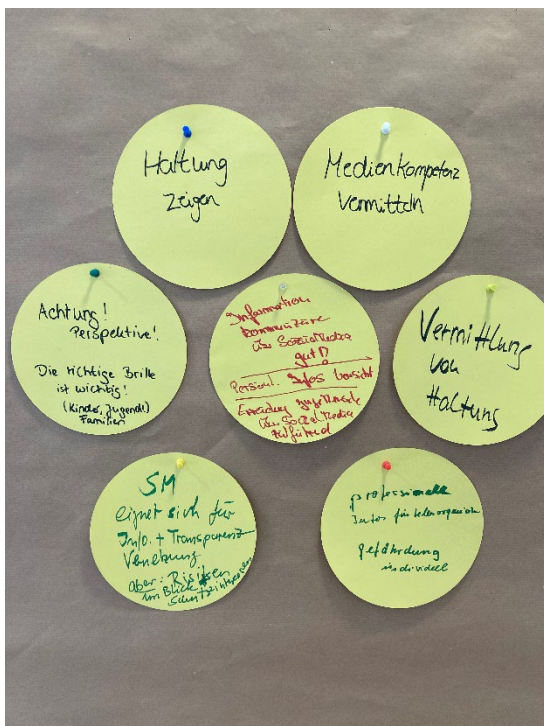 Haltung
zeigen
Medienkompetenz
vermitteln
Achtung!
Perspektive!
Die richtige Brille
ist wichtig!
(Kinder, Jugendl.)
Familien
Information
Social Media
gut!
Persönl. Infos Vorsicht
über Social Media
Vermittlung
von
Haltung
SM
eignet sich für
Info. + Transparenz
Vernetzung
aber: Risiken
im Blick
professionelle
Infos für
gefährdung
individuell